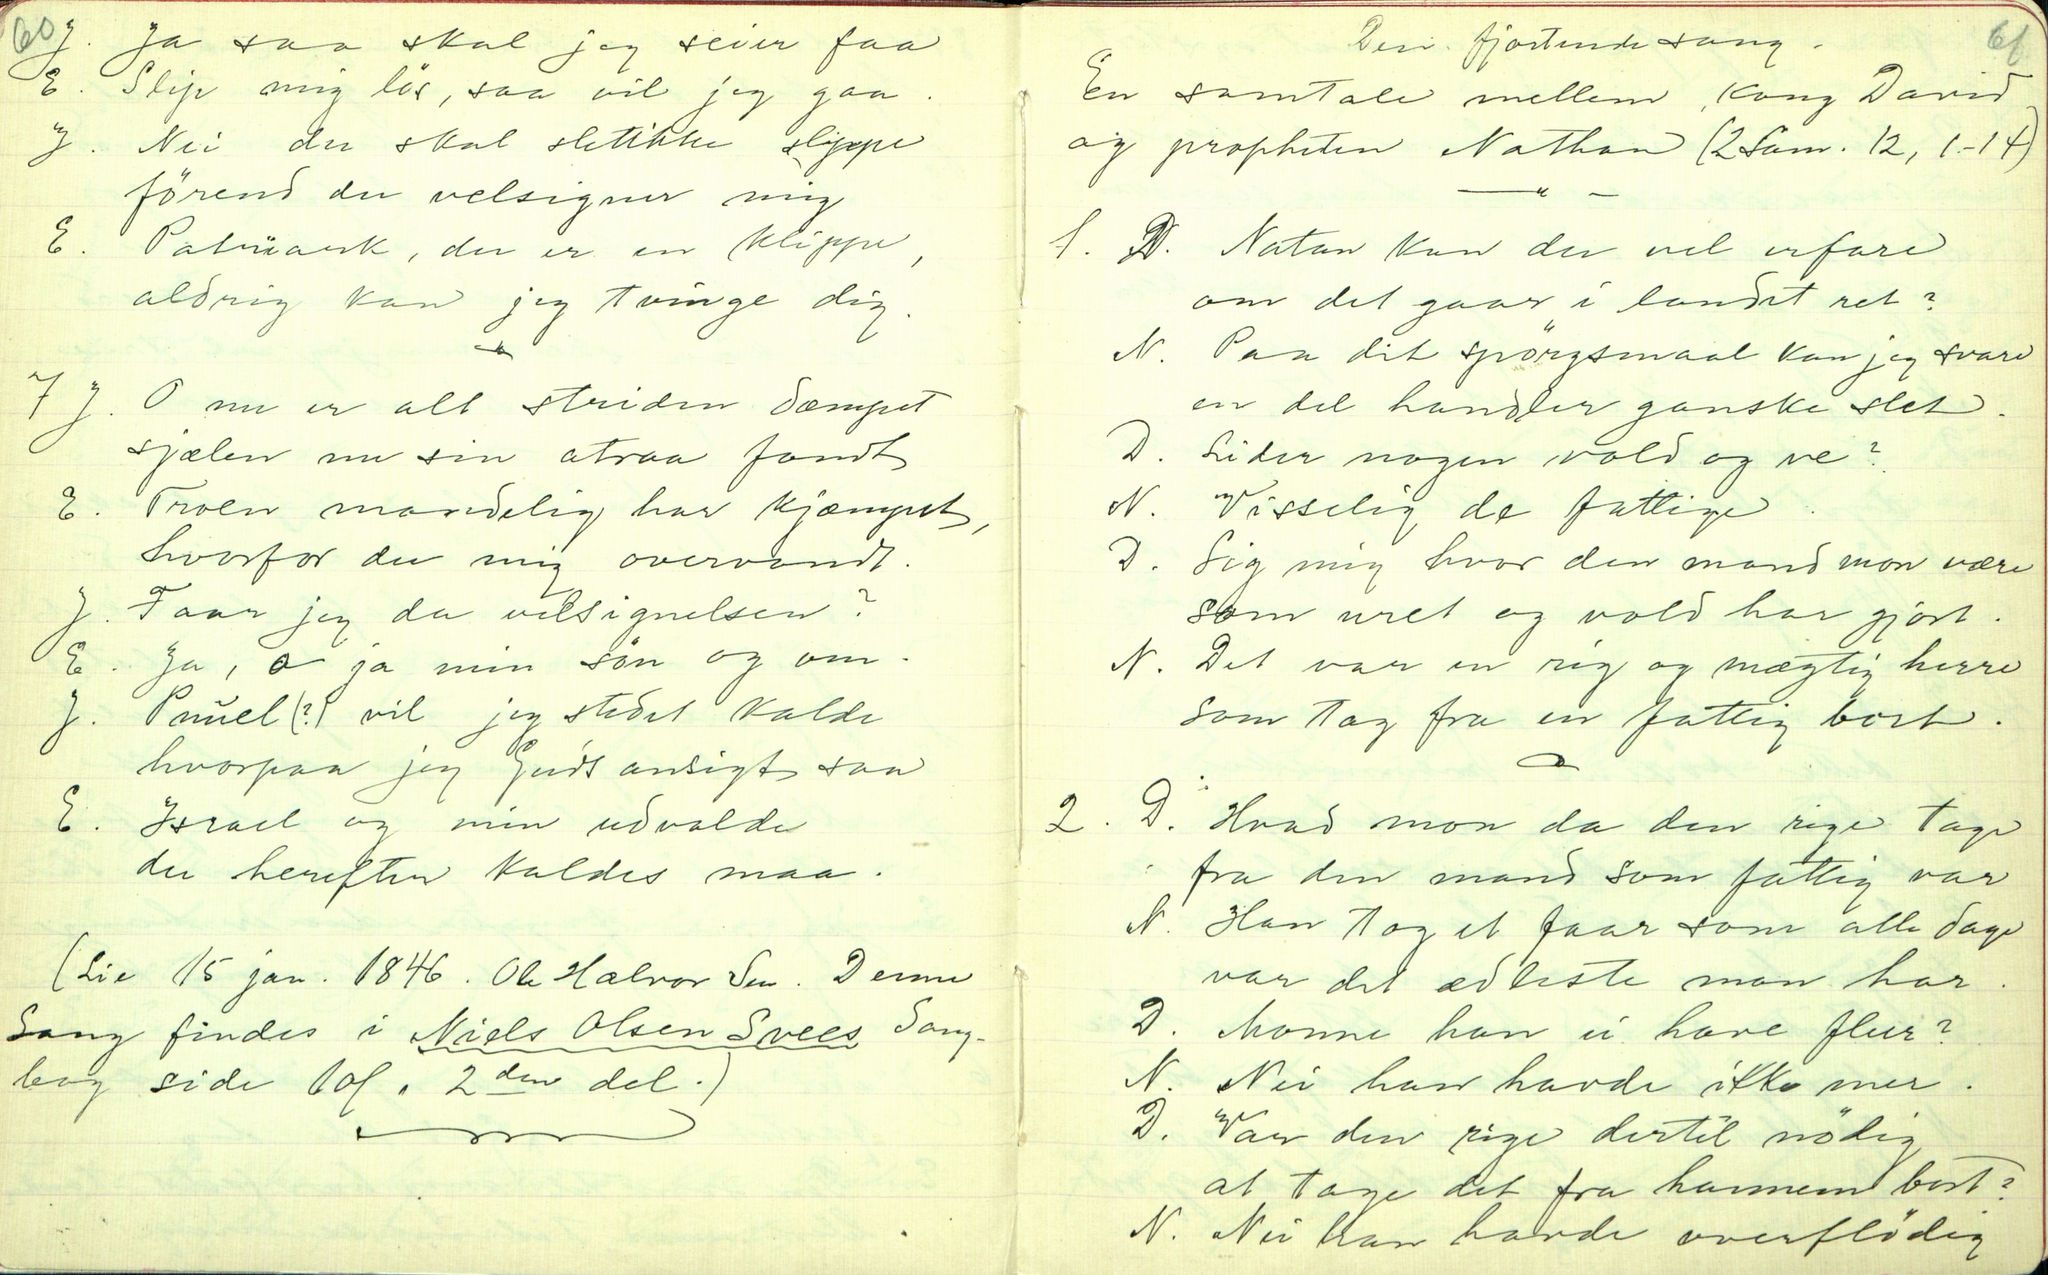 60
J. Ja saa skal jeg seier faa
E. Slip mig lös, saa vil jeg gaa.
J. Nei du skal sletikke slippe
förend du velsigner mig
E. Patriiark, du er en klippe,
aldrig kan jeg tvinge dig.
7 J. O nu er alt striden dæmpet
sjælen nu sin atraa fandt
E. Troen mandelig har kjæmpet,
hvorfor du mig overvandt.
J. Faar jeg da velsignelsen?
E. Ja, o ja min sön og ven.
J. Pnüel (?) vil jeg stedet kalde
hvorpaa jeg Guds ansigt saa
E. Israel og min udvalde
du herefter kaldes maa.
(Lie 15 jan. 1846. Ole Halvor Sen. Denne
Sang findes i Niels Olsen Svees Sang-
bog side 101, 2den del.)
61
Den fjortende sang.
En samtale mellem Kong David
og propheten Nathan (2 Sam. 12, 1-14)
1. D. Natan kan du vel erfare
om det gaar i landet ret?
N. Paa dit spörgsmaal kan jeg svare
en del handler ganske slet.
D. Lider nogen vold og ve?
N. Visselig de fattige.
D. Sig mig hvor den mand mon være
som uret og vold har gjort.
N. Det var en rig og mægtig herre
som tog fra en fattig bort.
2. D. Hvad mon da den rige tage
fra den mand som fattig var
N. Han tog et faar som alle dage
var det ædleste man har.
D. Monne han ei have fleer?
N. Nei han havde ikke mer.
D. Var den rige dertil nödig
at tage det fra hannem bort?
N. Nei han havde overflödig